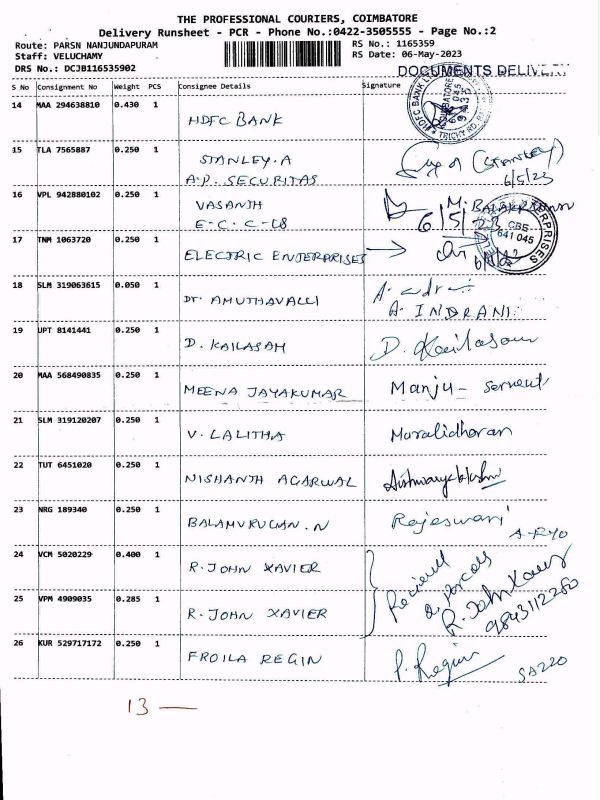 THE PROFESSIONAL COURIERS, COIMBATORE
Delivery Runsheet - PCR - Phone No.:0422-3505555 - Page No.:2
Route: PARSN NANJUNDAPURAM RS No.: 1165359
Staff: VELUCHAMY RS Date: 06-May-2023
DRS No.: DCJB116535902
DOCUMENTS DELIV
S No Consignment No Weight PCS Consignee Details Signature
14 MAA 294638810 0.430 1 HDFC BANK
15 TLA 7565887 0.250 1 STANLEY.A (STANLEY)
A.P. SECURITAS 6/5/23
16 VPL 942880102 0.250 1 VASANTH
E-C.C-L8 6/5/23
17 TNM 1063720 0.250 1 ELECTRIC ENTERPRISES
CBE
641 045
18 SLM 319063615 0.050 1 Dr. AMUTHAVALLI
A. INDRANI
19 UPT 8141441 0.250 1 D. KAILASAM D. Kailasam
20 MAA 568490835 0.250 1 MEENA JAYAKUMAR Manju - Servent
21 SLM 319120207 0.250 1 V. LALITHA Muralidharan
22 TUT 6451020 0.250 1 NISHANTH AGARWAL
23 NRG 189340 0.250 1 BALAMURUGAN.N Rajeswari
24 VCM 5020229 0.400 1 R. JOHN XAVIER
25 VPM 4909035 0.285 1 R. JOHN XAVIER R. John Xavier
9843112280
26 KUR 529717172 0.250 1 FROILA REGIN P. Regin SA220
13 —